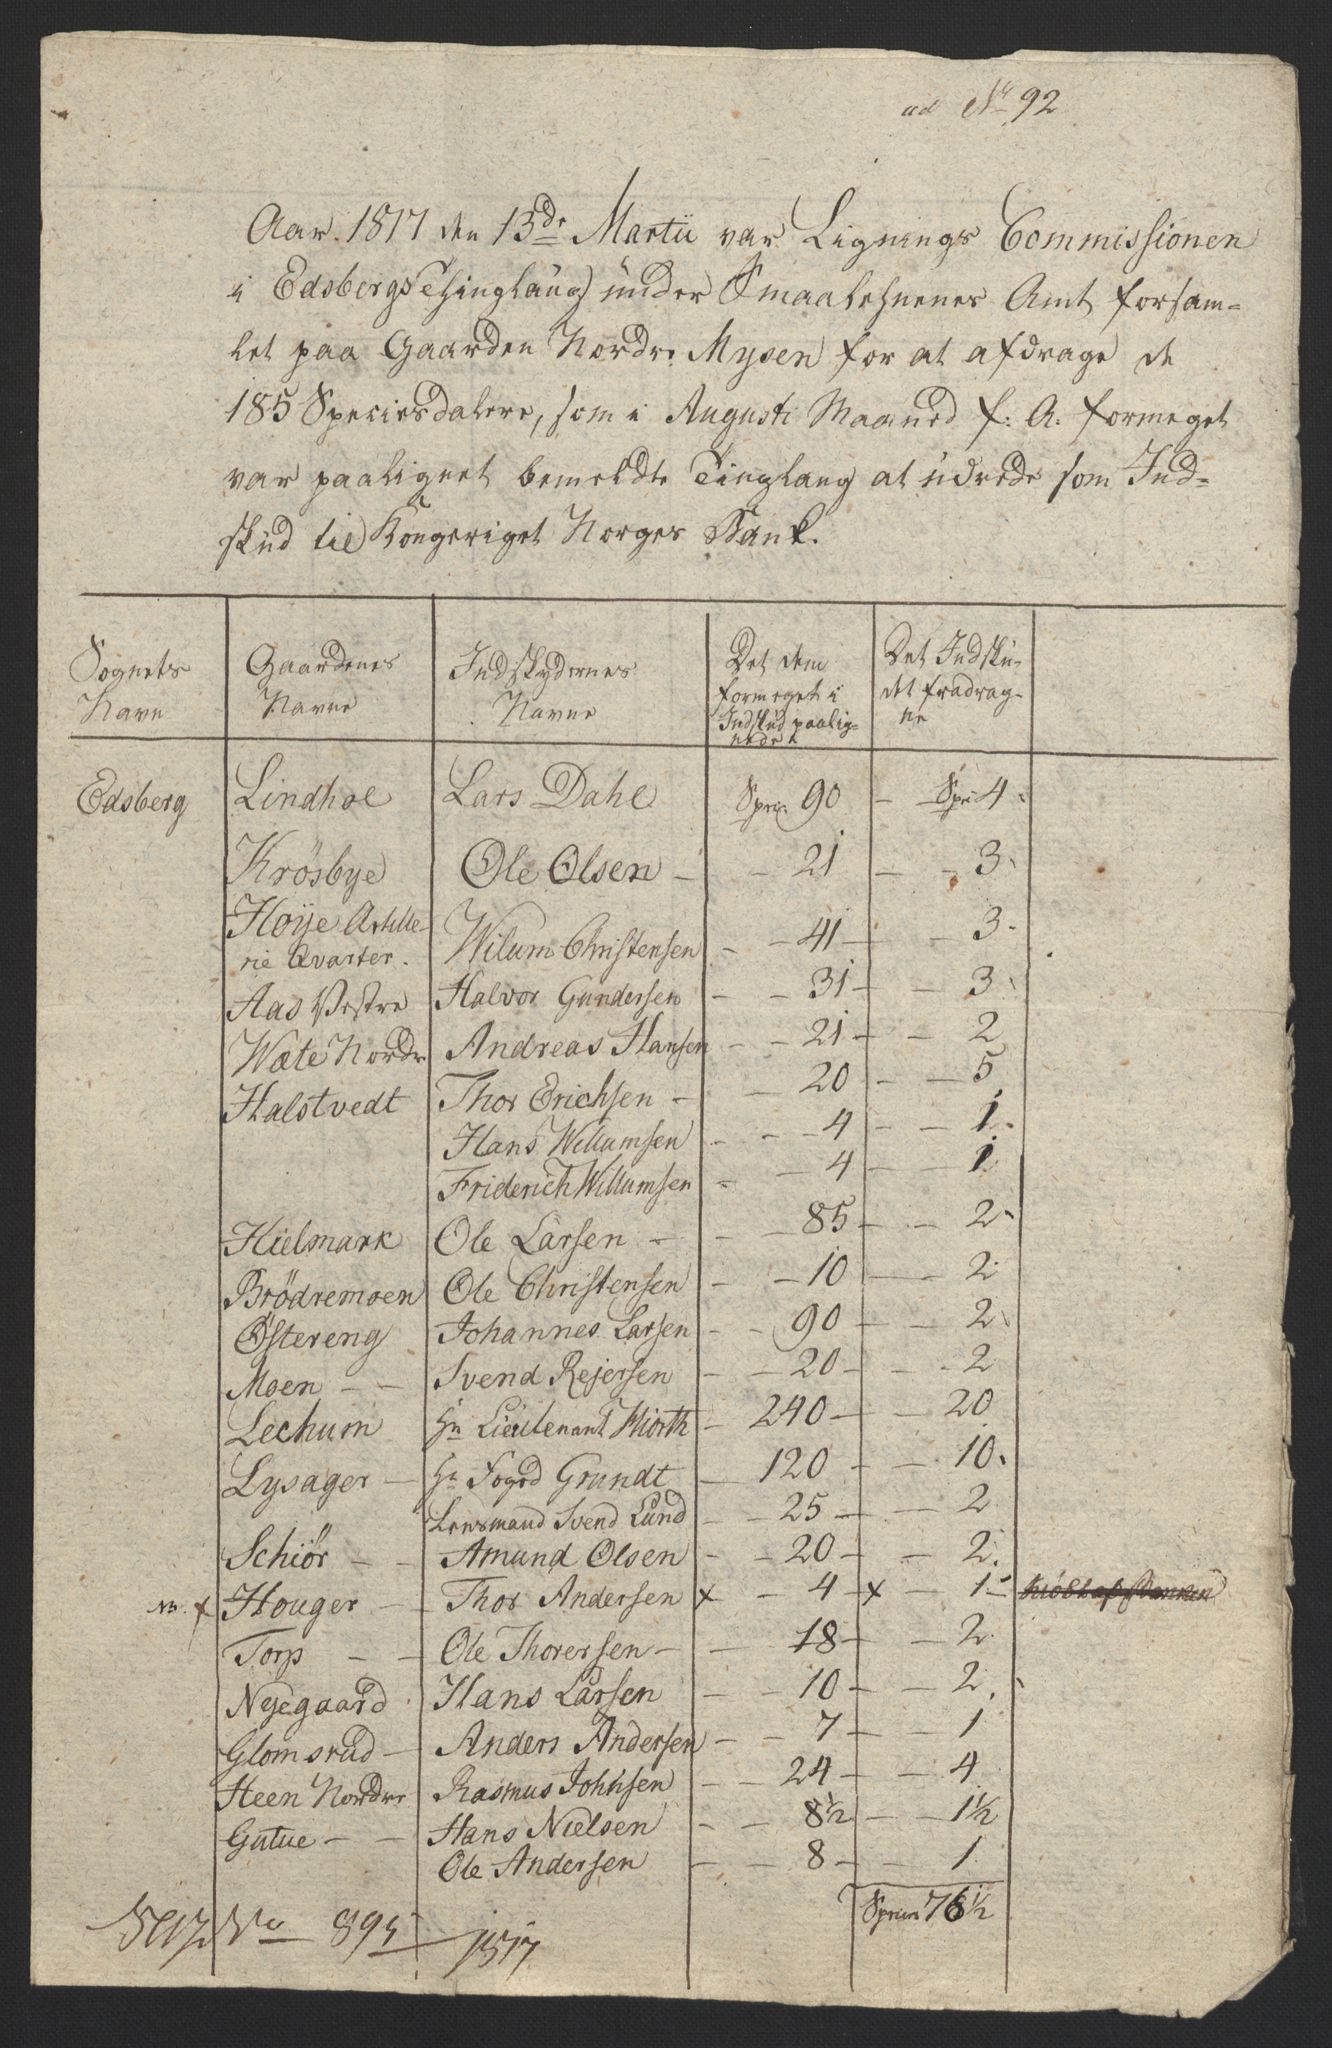 ad No 92
Aar 1817 den 13de Martii var Lignings Commissionen
i Edsbergs Thinglaug under Smaalehnenes Amt forsam-
let paa Gaarden Nordre Mysen for at afdrage de
185 Speciesdalere, som i Augusti Maaned f: A: formeget
var paalignet bemeldte Tinglaug at udrede som Ind-
skud til Kongeriget Norges Bank.
Sognets Navn | Gaardenes Navne | Indskydernes Navne | Det dem formeget i Indskud paalig- nede | Det Indsku- det fradrag- ne
Edsberg Lindhol Lars Dahl Spec: 90 - Spe: 4
Krösbye Ole Olsen - - 21 - - 3
Höije Artille-
rie Qvarteer. Wilum Christensen - - 41 - - 3
Aas Vestre Halvor Gundersen - - 31 - - 3
Wæte Nordr Andreas Hansen - - 21 - - 2
Halstvedt Thor Erichsen - - 20 - - 5
Hans Willumsen - - 4 - - 1
Friderich Willumsen - - 4 - - 1
Hielmark Ole Larsen - - 85 - - 2
Brödremoen Ole Christensen - - 10 - - 2
Östereng Johannes Larsen - - 90 - - 2
Moen - - Svend Rejersen - - 20 - - 2
Lechum Hr Lieutenant Hiorth - 240 - - 20
Lysager - Hr Foged Grundt - 120 - - 10
Lensmand Svend Lund - - 25 - - 2
Schiör - - Amund Olsen - - 20 - - 2
NB. x Houger - Thor Andersen x - 4 x - 1
Torp - - Ole Thorersen - - 18 - - 2
Nyegaard Hans Larsen - - 10 - - 2
Glomsrud - Anders Andersen - - 7 - - 1
Heen Nordre Rasmus Johnsen - - 24 - - 4
Gutue - - Hans Nielsen - - 8½ - - 1½
Ole Andersen - - 8 - - 1
Specier 76½
No 895 1817